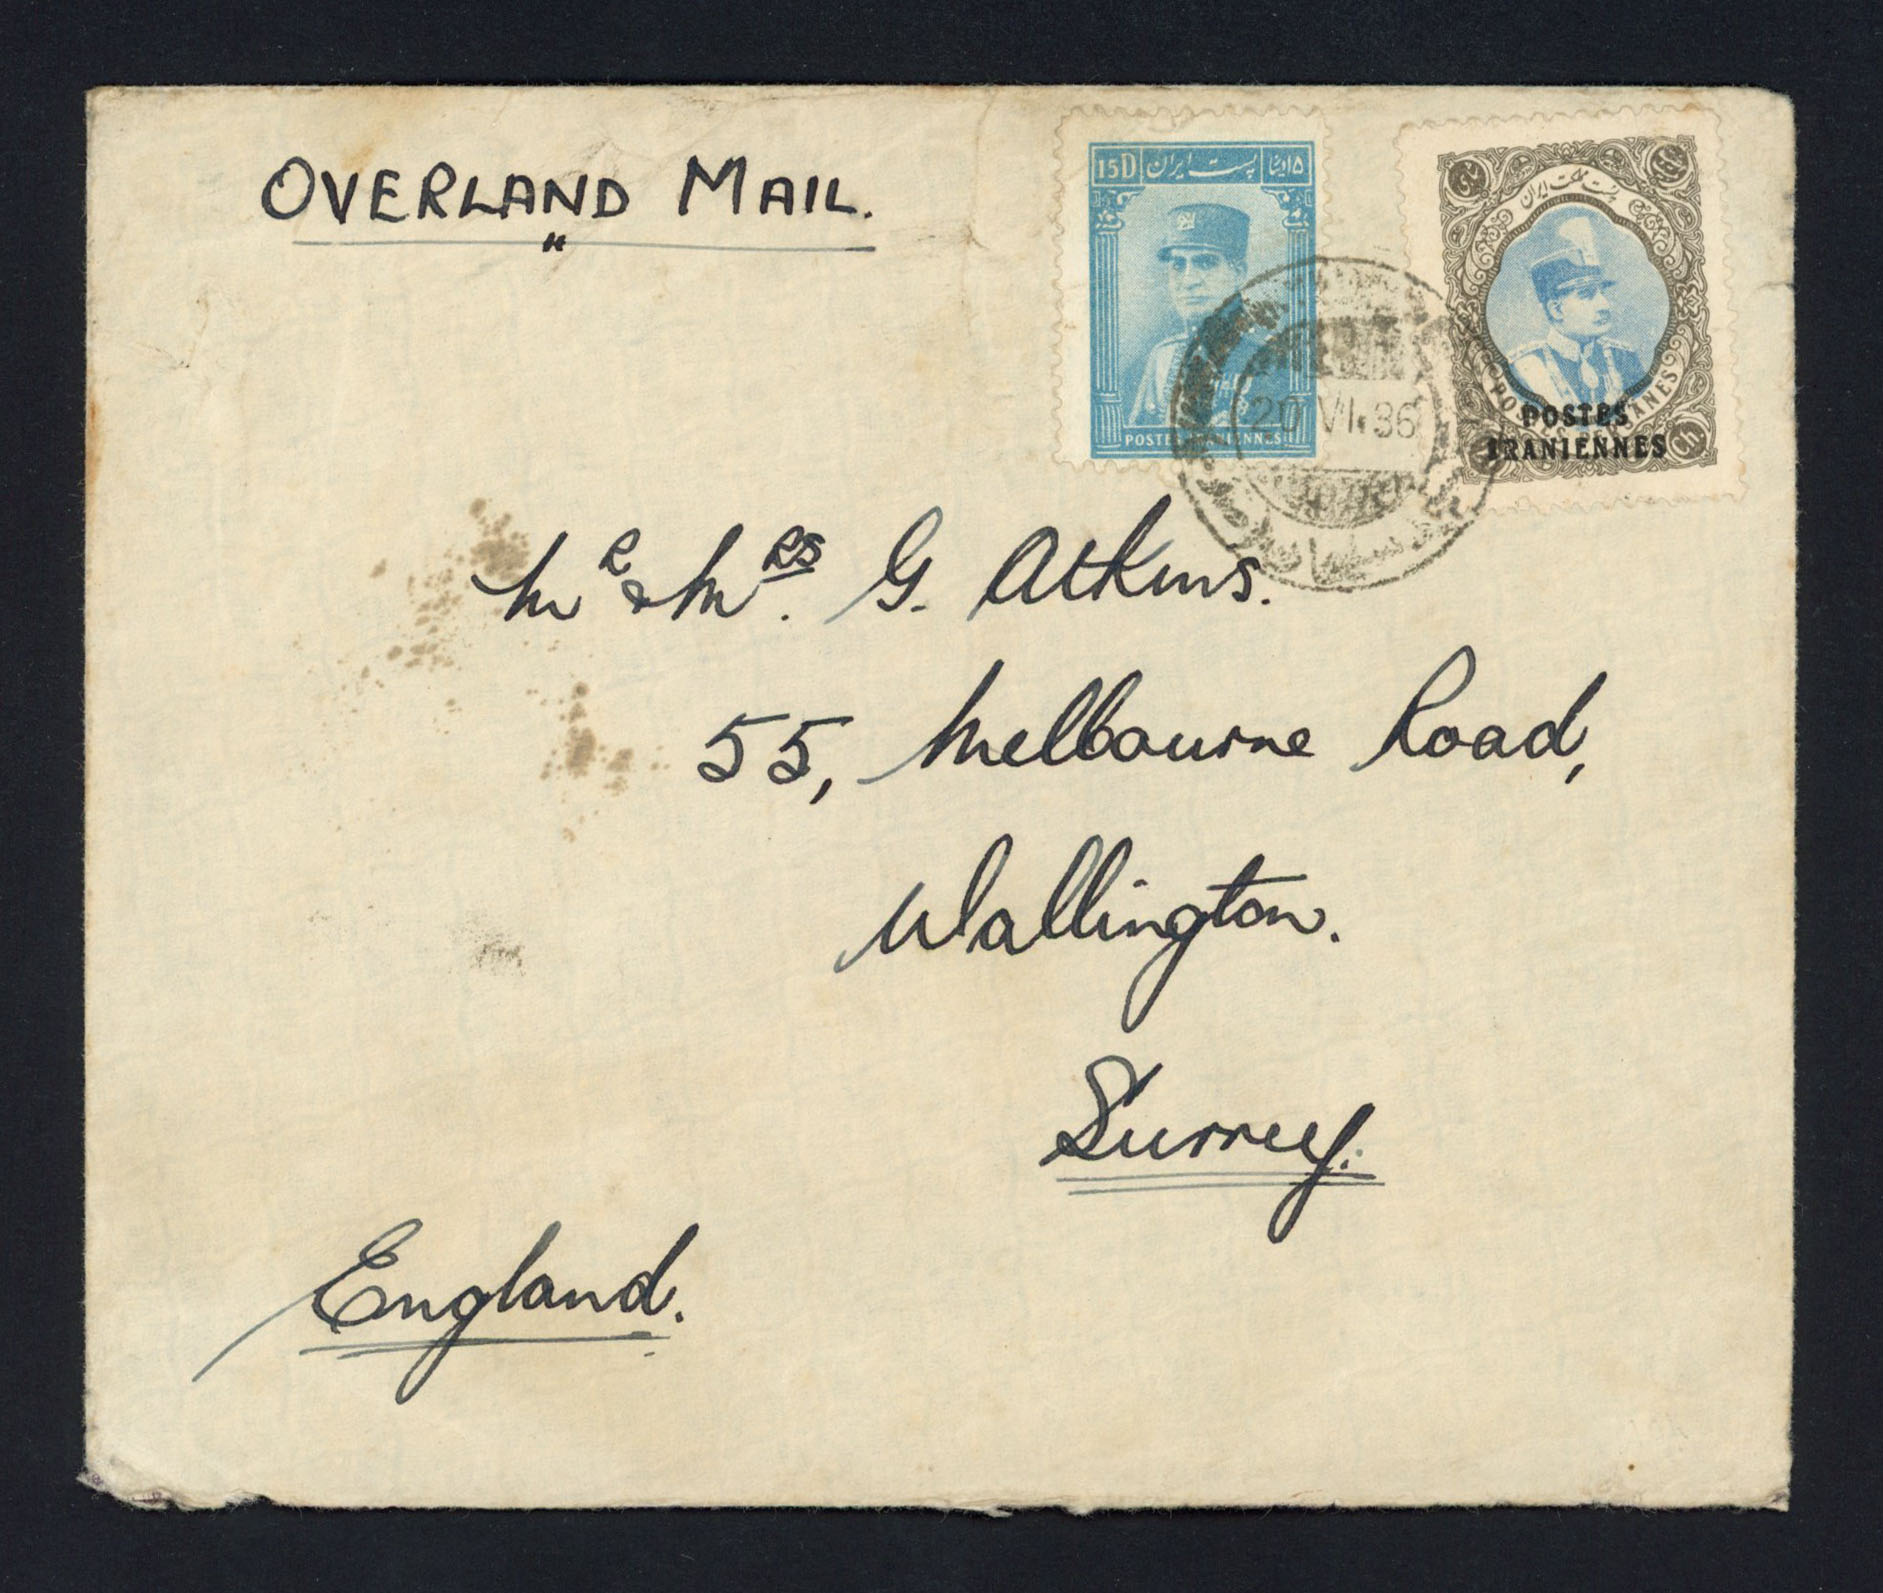 OVERLAND MAIL.
15D پست ایران ۱۵دینار
POSTES IRANIENNES
پست مملکتی ایران
POSTES
IRANIENNES
Ch.
20 VI 36
MR & MRS. G. Atkins.
55, Melbourne Road,
Wallington.
Surrey.
England.